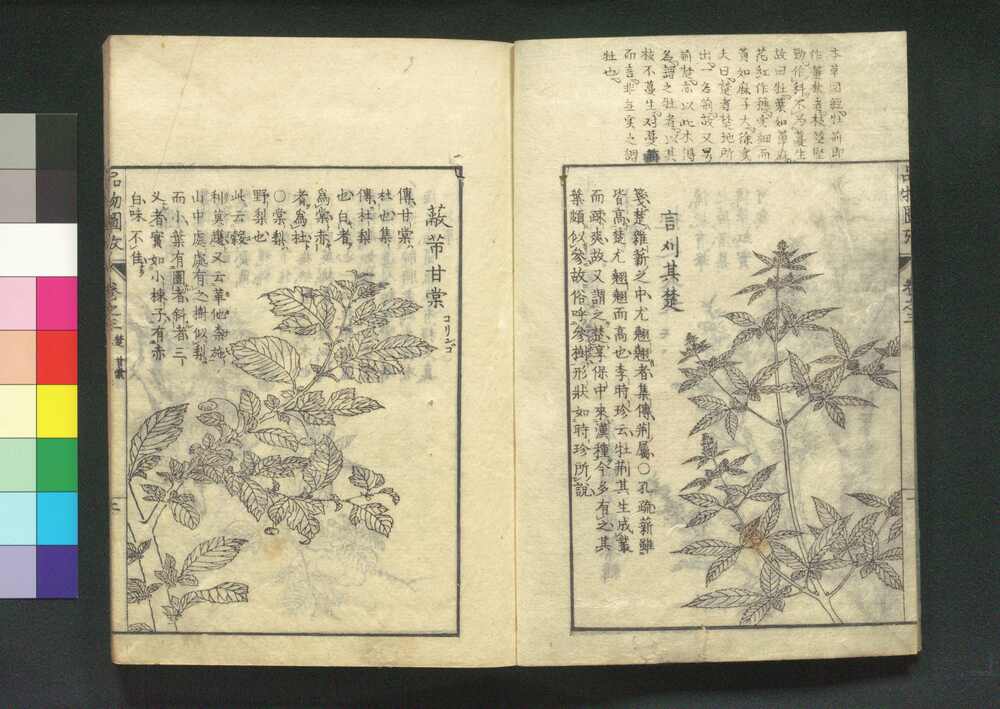 本草圖經牡荊即
作箠杖者枝莖堅
勁作科不爲蔓生
故曰牡葉如萆麻
花紅作穗實細而
黃如麻子大
楚者楚地所
出一名荊故又曰
荊楚當以此木得
名謂之牡者以其
枝不蔓生對蔓荊
而言非無實之謂
牡也
言刈其楚
箋楚雜薪之中尤翹翹者集傳荊屬〇孔疏薪雖
皆高楚尤翹翹而高也李時珍云牡荊其生成叢
而疎爽故又謂之楚享保中來漢種今多有之其
葉頗似參故俗呼參樹形狀如時珍所說
蔽芾甘棠 コリンゴ
傳甘棠
杜也集
傳杜梨
也白者
爲棠赤
者爲杜
〇棠梨
野梨也
此云
又云草他奈施
山中處處有之樹似梨
而小葉有圓者斜者三
叉者實如小楝子有赤
白味不佳
品物圖攷 卷之三 楚 甘棠 二